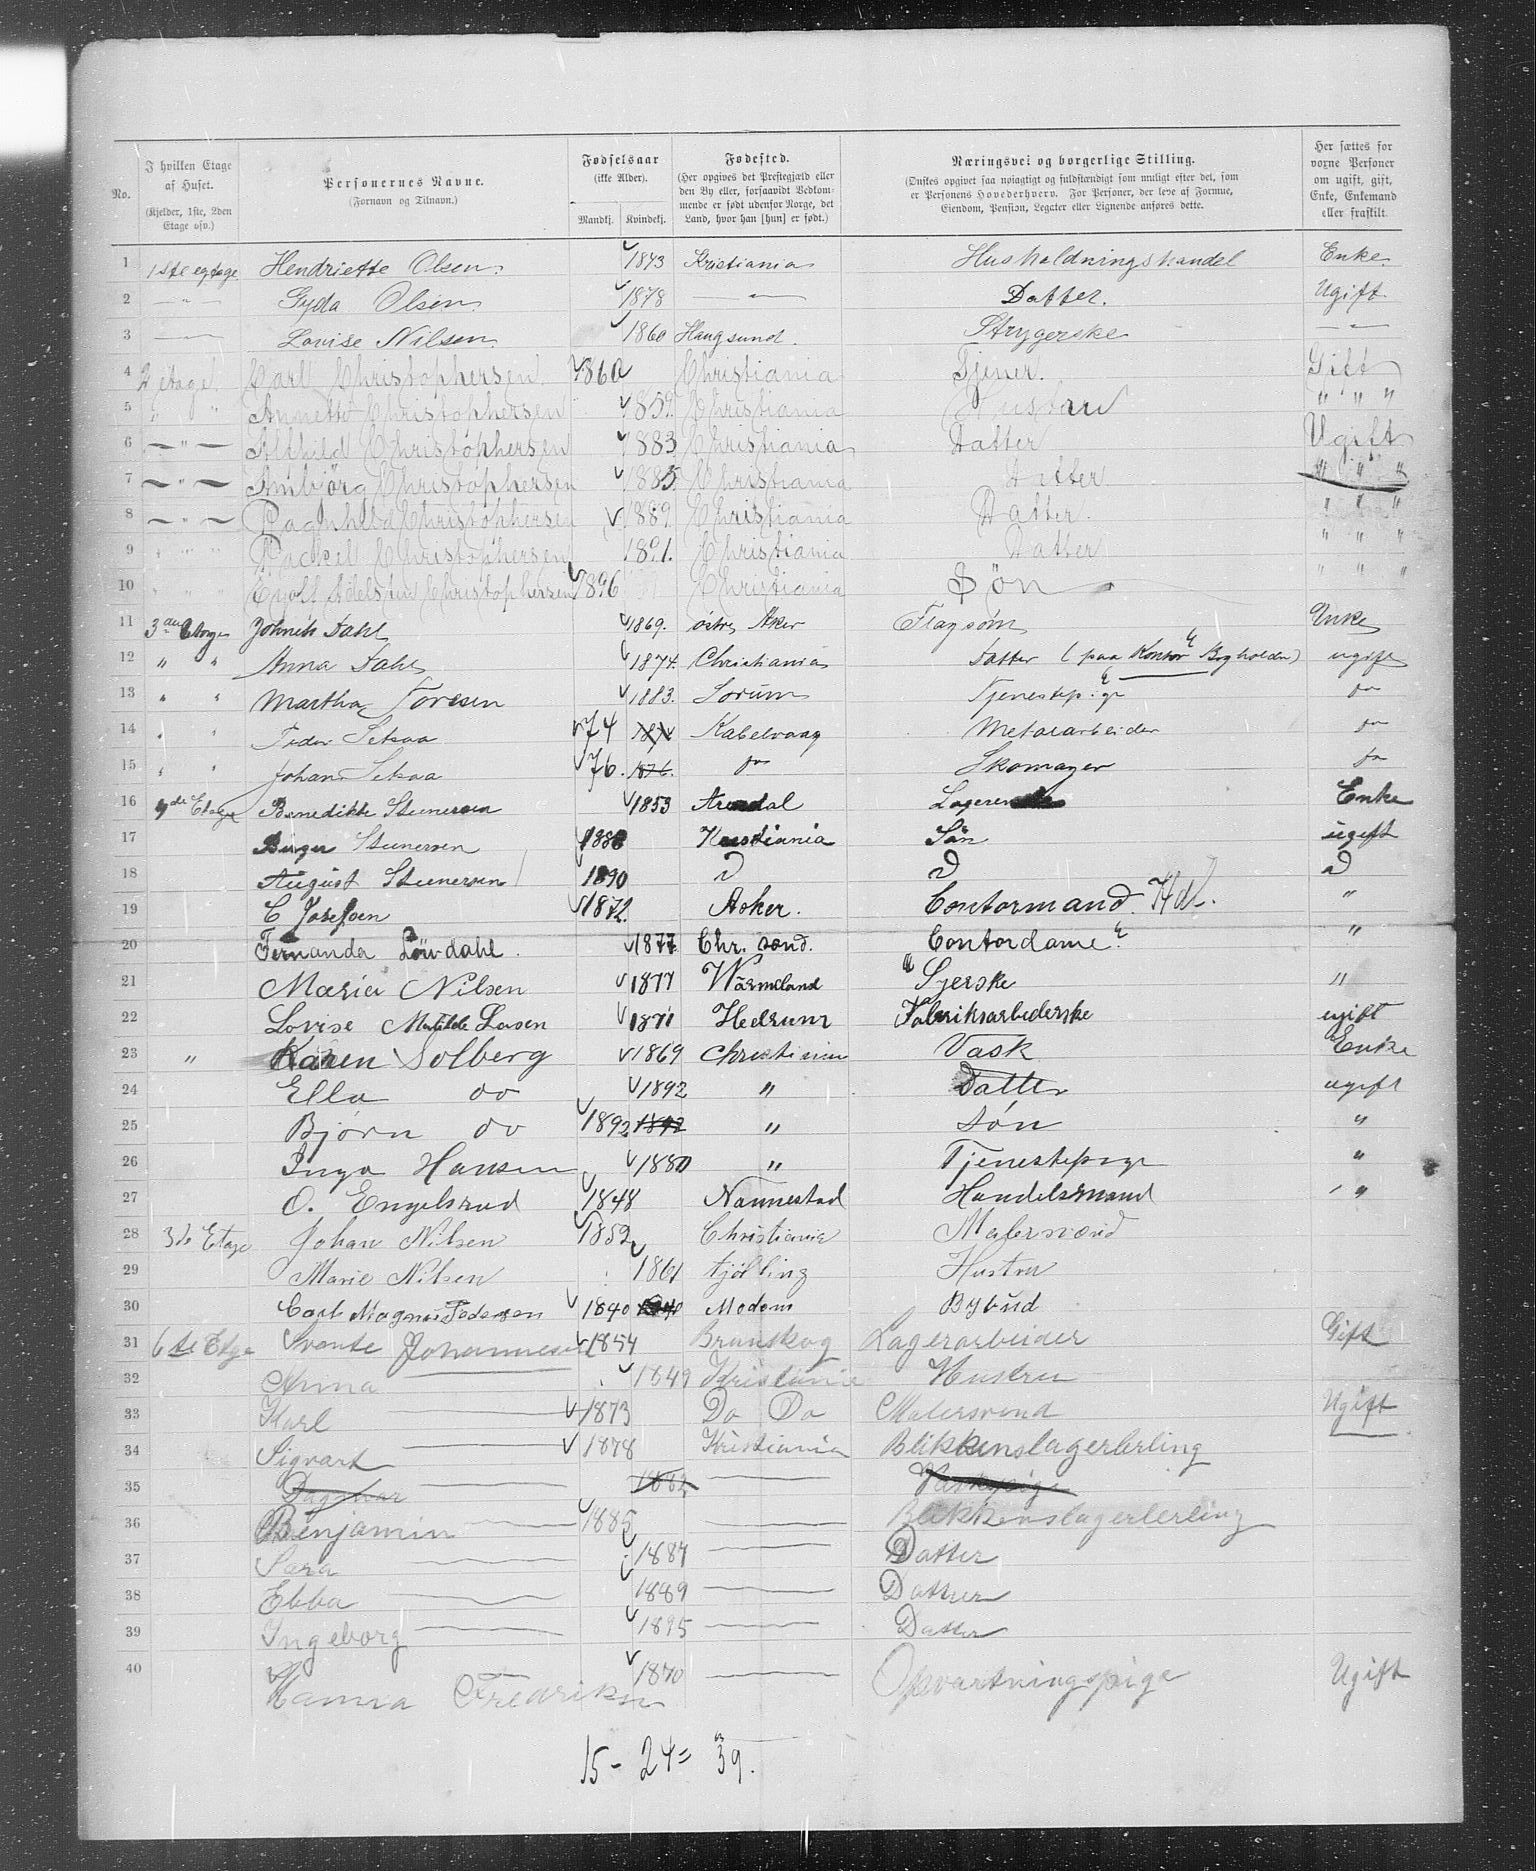 No. | I hvilken Etage af Huset. (Kjelder, 1ste, 2den Etage osv.) | Personernes Navne. (Fornavn og Tilnavn.) | Fødselsaar (ikke Alder). Mandkj. Kvindekj. | Fødested. (Her opgives det Prestegjæld eller den By eller, forsaavidt Vedkommende er født udenfor Norge, det Land, hvor han [hun] er født.) | Næringsvei og borgerlige Stilling. (Ønskes opgivet saa nøiagtigt og fuldstændigt som muligt efter det, som er Personens Hovederhverv. For Personer, der leve af Formue, Eiendom, Pension, Legater eller Lignende anføres dette.) | Her sættes for vorne Personer om ugift, gift, Enke, Enkemand eller fraskilt.
1 1ste egtage Henriette Olsen. 1843 Kristiania Husholdningshandel Enke.
2 — " — Gyda Olsen 1878 — " — Datter. Ugift
3 — Lovise Nilsen. 1860 Haugsund. Strygerske — " —
4 2 etage Carl Christophersen. 1860 Christiania Tjener. Gift
5 " " Annette Christophersen 1859. Christiania Hustru " " "
6 — " — Althild Christophersen 1883 Christiania Datter Ugift
7 — " — Ambjörg Christophersen 1885 Christiania Datter " " "
8 — " — Ragnhild Christophersen 1889 Christiania Datter. " " "
9 " " " Rackel Christophersen 1891. Christiania Datter " " "
10 " " " Eyolf Adelsten Christophersen 1896 Christiania Søn " " "
11 3die Etage Dahl 1869. östre Aker Enke
12 " " Anna Dahl 1874. Christiania Datter (paa Kontor Bogholder) ugift
13 " " Martha Toresen 1883. Sorum Tjenestepige do
14 " " Peder Setsaa 74 1874 Kabelvaag Metalarbeider do
15 " " Johan Setsaa 76. 1876. do Skomager do
16 4de Etage Benedikte Steenersen 1853 Arendal Enke
17 Birger Steenersen 1888 Kristiania Sön ugift
18 August Steenersen 1890 D D D
19 C Josefsen 1872 Asker. Contormand. Hd. "
20 Fernanda Lövdahl. 1877 Chr. sand. Contordame "
21 Maria Nilsen 1877 Wärmeland Syerske "
22 Lovise Matilde Larsen 1871 Hedrum Fabriksarbederske ugift
23 " Karen Solberg 1869 Christiania Vask Enke
24 Ella do 1892 " Datter ugift
25 Bjørn do 1892 1892 " søn "
26 Inga Hansen 1880 " Tjenestepige "
27 O. Engelsrud 1848 Nannestad Handelsmand "
28 3de Etage Johan Nilsen 1852 Christiania Malersvend
29 Marie Nilsen 1861 tjölling Hustru
30 Carl Magnus Pedersen 1840 1840 Modum Bybud
31 6te Etage Svante Johannesen 1854 Brunskog Lagerarbeider Gift
32 Anna — 1849 Kristiania Hustru
33 Karl — 1873 Do Do Malersvend Ugift
34 Sigvart — 1878 Kristiania Blikkenslagerlerling
35 Dagmar 1882 — Vaskepige
36 Benjamin — 1885 — Blikkenslagerlerling
37 Sara — 1887 — Datter
38 Ebba — 1889 — Datter
39 Ingeborg — 1895 — Datter
40 Hanna Fredriksen 1870 — Opvartningspige Ugift
15 - 24 = 39.